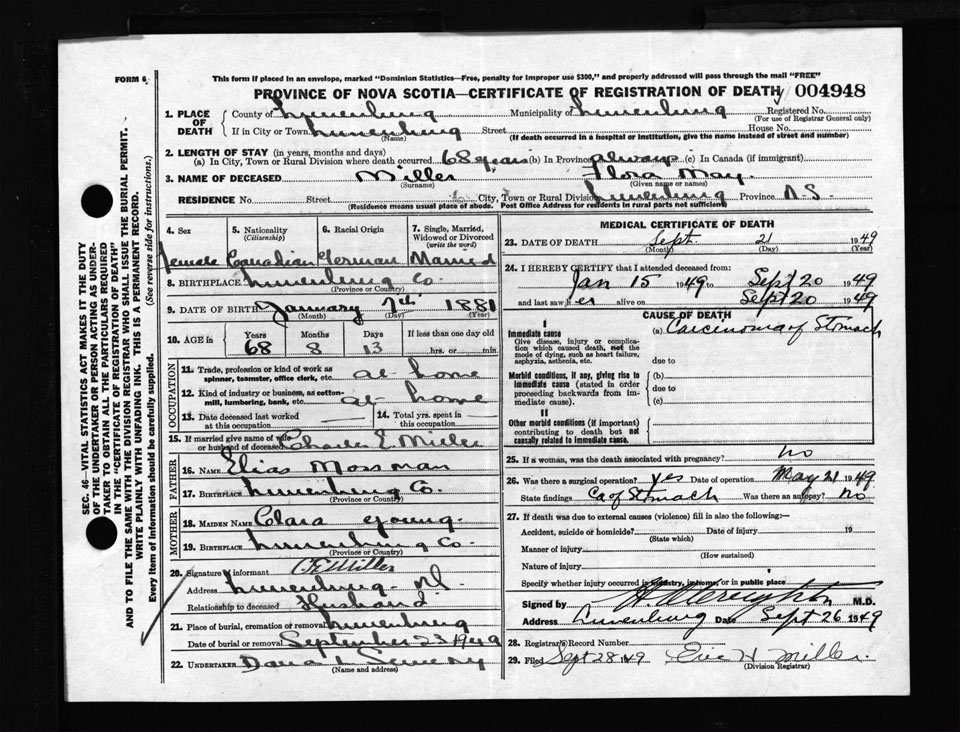 FORM 6
This form if placed in an envelope, marked "Dominion Statistics—Free, penalty for improper use $300," and properly addressed will pass through the mail "FREE"
PROVINCE OF NOVA SCOTIA—CERTIFICATE OF REGISTRATION OF DEATH 004948
1. PLACE OF DEATH
County of Lunenburg Municipality of Lunenburg Registered No.
(For use of Registrar General only)
If in City or Town Lunenburg Street House No.
(Name) (If death occurred in a hospital or institution, give the name instead of street and number)
2. LENGTH OF STAY (in years, months and days)
(a) In City, Town or Rural Division where death occurred 68 years (b) In Province always (c) In Canada (if immigrant)
3. NAME OF DECEASED Miller Flora May
(Surname) (Given name or names)
RESIDENCE No. Street City, Town or Rural Division Lunenburg Province N.S.
(Residence means usual place of abode. Post Office Address for residents in rural parts not sufficient)
4. Sex 5. Nationality (Citizenship) 6. Racial Origin 7. Single, Married, Widowed or Divorced (write the word)
Female Canadian German Married
8. BIRTHPLACE Lunenburg Co.
(Province or Country)
9. DATE OF BIRTH January 7th 1881
(Month) (Day) (Year)
10. AGE in Years Months Days If less than one day old
68 8 13 hrs. or min.
OCCUPATION
11. Trade, profession or kind of work as spinner, teamster, office clerk, etc. at home
12. Kind of industry or business, as cotton-mill, lumbering, bank, etc. at home
13. Date deceased last worked at this occupation
14. Total yrs. spent in this occupation
15. If married give name of wife or husband of deceased Charles E Miller
FATHER
16. NAME Elias Mossman
17. BIRTHPLACE Lunenburg Co.
(Province or Country)
MOTHER
18. MAIDEN NAME Clara Young
19. BIRTHPLACE Lunenburg Co.
(Province or Country)
20. Signature of informant C E Miller
Address Lunenburg N.S.
Relationship to deceased Husband
21. Place of burial, cremation or removal Lunenburg
Date of burial or removal September 23 1949
22. UNDERTAKER
(Name and address)
MEDICAL CERTIFICATE OF DEATH
23. DATE OF DEATH Sept. 21 1949
(Month) (Day) (Year)
24. I HEREBY CERTIFY that I attended deceased from:
Jan 15 1949 to Sept 20 1949
and last saw h er alive on Sept 20 1949
CAUSE OF DEATH
I
Immediate cause (a) Carcinoma of Stomach
Give disease, injury or complication which caused death, not the mode of dying, such as heart failure, asphyxia, asthenia, etc.
due to
Morbid conditions, if any, giving rise to immediate cause (stated in order proceeding backwards from immediate cause).
(b)
due to
(c)
II
Other morbid conditions (if important) contributing to death but not causally related to immediate cause.
25. If a woman, was the death associated with pregnancy? no
26. Was there a surgical operation? yes Date of operation May 21 1949
State findings Ca of Stomach Was there an autopsy? no
27. If death was due to external causes (violence) fill in also the following:
Accident, suicide or homicide? Date of injury 19
(State which)
Manner of injury
(How sustained)
Nature of injury
Specify whether injury occurred in industry, in home, or in public place
Signed by M.D.
Address Lunenburg Date Sept 26 1949
28. Registrar's Record Number
29. Filed Sept 28 49 Eric H Miller
(Division Registrar)
SEC. 46—VITAL STATISTICS ACT MAKES IT THE DUTY
OF THE UNDERTAKER OR PERSON ACTING AS UNDER-
TAKER TO OBTAIN ALL THE PARTICULARS REQUIRED
IN THE "CERTIFICATE OF REGISTRATION OF DEATH"
AND TO FILE THE SAME WITH THE DIVISION REGISTRAR WHO SHALL ISSUE THE BURIAL PERMIT.
WRITE PLAINLY WITH UNFADING INK. THIS IS A PERMANENT RECORD.
Every item of information should be carefully supplied. (See reverse side for instructions.)